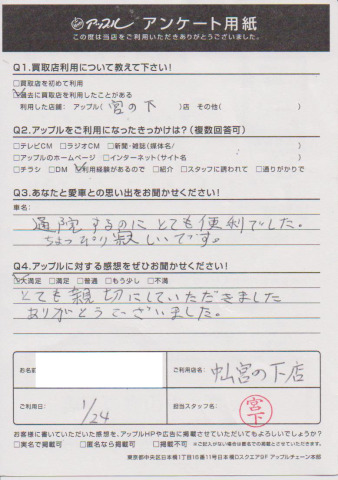 アップル アンケート用紙
この度は当店をご利用いただきありがとうございました。
Q1.買取店利用について教えて下さい!
□買取店を初めて利用
☑過去に買取店を利用したことがある
利用した店舗: アップル( 宮の下 )店 その他( )
Q2.アップルをご利用になったきっかけは?(複数回答可)
□テレビCM □ラジオCM □新聞・雑誌(媒体名/ )
□アップルのホームページ □インターネット(サイト名 )
□チラシ □DM ☑利用経験があるので □紹介 □スタッフに誘われて □通りがかりで
Q3.あなたと愛車との思い出をお聞かせください!
車名:
通院するのにとても便利でした。
ちょっぴり寂しいです。
Q4.アップルに対する感想をぜひお聞かせください!
☑大満足 □満足 □普通 □もう少し □不満
とても親切にしていただきました
ありがとうございました。
お名前
ご利用店名: 宮の下店
ご利用日: 1/24
担当スタッフ名: 宮下
お客様に書いていただいた感想を、アップルHPや広告に掲載させていただいてもよろしいでしょうか?
□実名で掲載可 □匿名なら掲載可 □掲載不可 ※ご記入がない場合は匿名での掲載とさせていただきます。
東京都中央区日本橋1丁目16番11号日本橋Dスクエア9F アップルチェーン本部